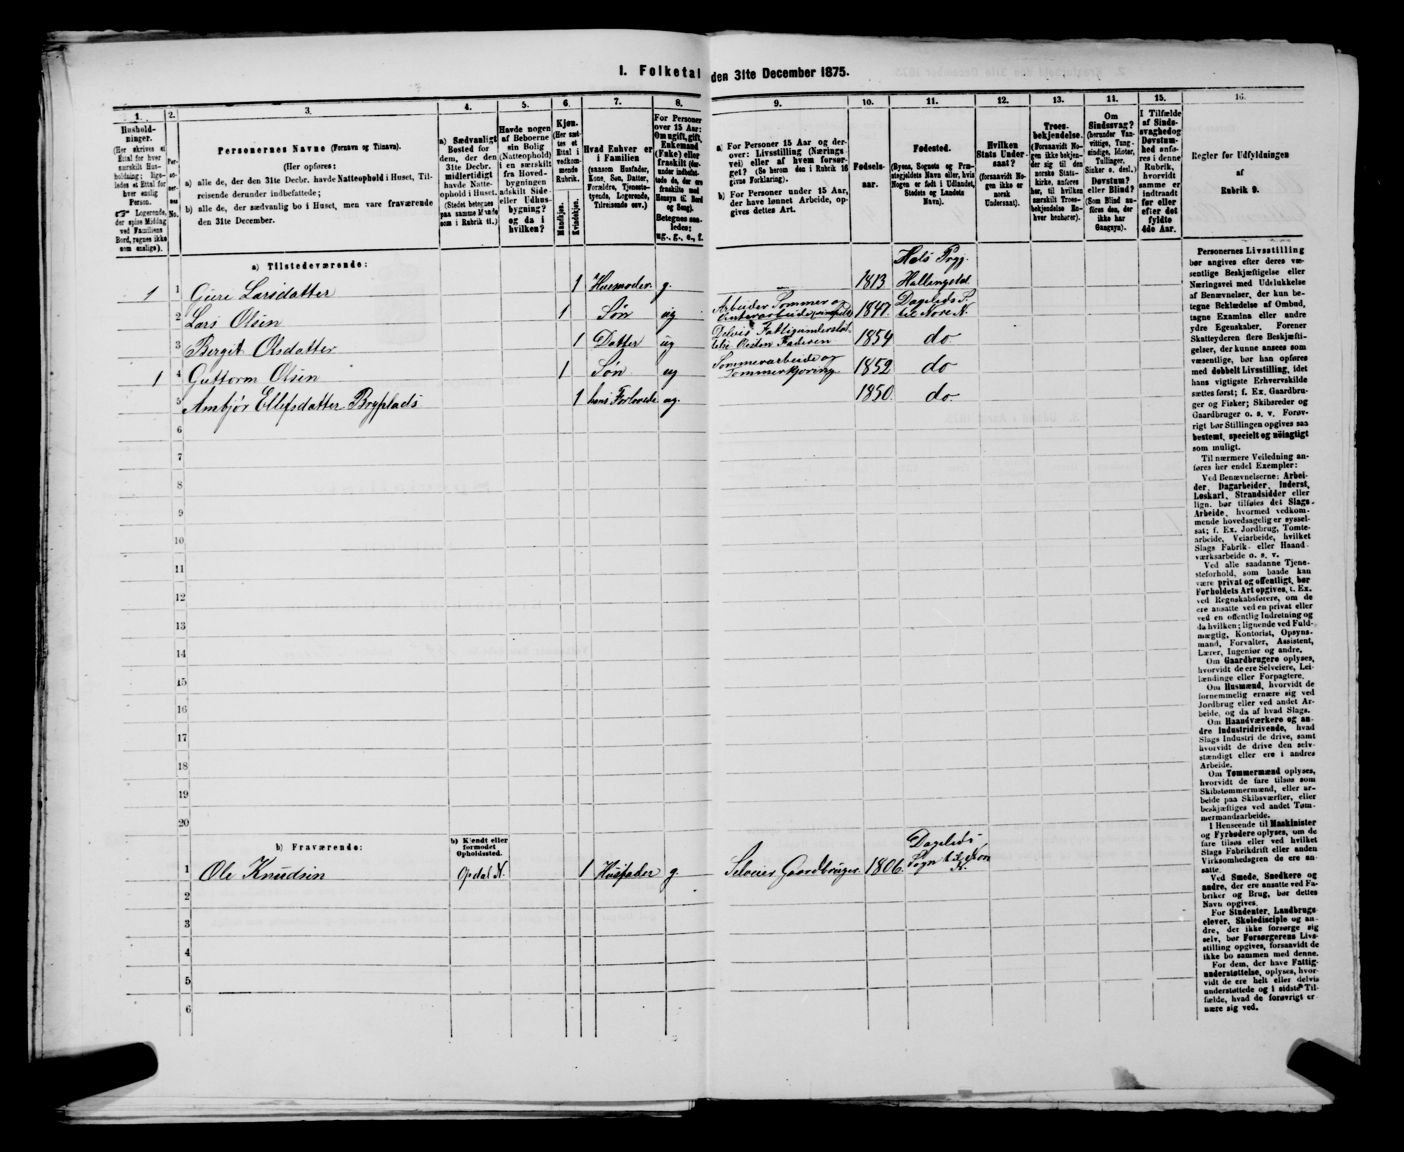 1. Folketal den 31te December 1875.
1.
2.
3.
4.
5.
6.
7.
8.
9.
10.
11.
12.
13.
14.
15.
16.
Husholdninger.
(Her skrives et Ettal for hver særskilt Husholdning; ligeledes et Ettal for hver enslig Person.
Logerende, der spise Middag ved Familiens Bord, regnes ikke som enslige).
Personernes No.
Personernes Navne (Fornavn og Tilnavn).
(Her opføres:
a) alle de, der den 31te Decbr. havde Natteophold i Huset, Tilreisende derunder indbefattede;
b) alle de, der sædvanlig bo i Huset, men vare fraværende den 31te December.
a) Sædvanligt Bosted for dem, der den 31te Decbr. midlertidigt havde Natteophold i Huset.
(Stedet betegnes paa samme Maade som i Rubrik 11.)
Havde nogen af Beboerne sin Bolig (Natteophold) i en særskilt fra Hovedbygningen adskilt Side- eller Udhusbygning? og da i hvilken?
Kjøn.
(Her sættes et Ettal i vedkommende Rubrik.
Mandkjøn.
Kvindekjøn.
Hvad Enhver er i Familien
(saasom Husfader, Kone, Søn, Datter, Forældre, Tjenestetyende, Logerende, Tilreisende osv.)
For Personer over 15 Aar: Om ugift, gift, Enkemand (Enke) eller fraskilt
Betegnes saaledes: ug., g., e., f.
a) For Personer 15 Aar og derover: Livsstilling (Næringsvei) eller af hvem forsørget? (Se herom den i Rubrik 16 givne Forklaring).
b) For Personer under 15 Aar, der have lønnet Arbeide, opgives dettes Art.
Fødselsaar.
Fødested.
(Byens, Sognets og Præstegjeldets Navn, eller, hvis Nogen er født i Udlandet, Stedets og Landets Navn).
Hvilken Stats Undersaat?
(forsaavidt Nogen ikke er norsk Undersaat).
Troesbekjendelse.
(Forsaavidt Nogen ikke bekjender sig til den norske Statskirke, anføres her, til hvilken særskilt Troesbekjendelse Nogen henhører).
Om Sindssvag?
(herunder Vanvittige, Tungsindige, Idioter, Tullinger, Sinker o. desl.)
Døvstum? eller Blind?
(Som Blind anføres den, der ikke har Gangsyn).
I Tilfælde af Sindssvaghed og Døvstumhed anføres i denne Rubrik, hvorvidt samme er indtraadt før eller efter det fyldte 4de Aar.
Regler for Udfyldningen af Rubrik 9.
a) Tilstedeværende:
1 1 Guri Larsdatter 1 Husmoder g. 1813 Hols Prgj. Hallingdal
2 Lars Olsen 1 Søn ug Arbeider Sommer og 1847
3 Bergit Olsdatter 1 Datter ug Delvis Fattigunderstøt. 1854 do
1 4 Guttorm Olsen 1 Søn ug Sommerarbeide og Tømmerkjøring 1852 do
5 Ambjør Ellefsdatter 1 hans Forlovede ug. 1850 do
6
7
8
9
10
11
12
13
14
15
16
17
18
19
20
b) Fraværende:
b) Kjendt eller formodet Opholdssted.
1 Ole Knudsen Opdal N. 1 Husfader g. Selveier Gaardbruger 1806
2
3
4
5
6
Personernes Livsstilling bør angives efter deres væsentlige Beskjæftigelse eller Næringsvei med Udelukkelse af Benævnelser, der kun betegne Beklædelse af Ombud, tagne Examina eller andre ydre Egenskaber. Forener Skatteyderen flere Beskjæftigelser, der kunne ansees som væsentlige, bør han opføres med dobbelt Livsstilling, idet hans vigtigste Erhvervskilde sættes først; f. Ex. Gaardbruger og Fisker; Skibsreder og Gaardbruger o. s. v. Forøvrigt bør Stillingen opgives saa bestemt, specielt og nöiagtigt som muligt.
Til nærmere Veiledning anføres her endel Exempler:
Ved Benævnelserne: Arbeider, Dagarbeider, Inderst, Løskarl, Strandsidder eller lign. bør tilføies det Slags Arbeide, hvormed vedkommende hovedsagelig er sysselsat; f. Ex. Jordbrug, Tomtearbeide, Veiarbeide, hvilket Slags Fabrik- eller Haandværksarbeide o. s. v.
Ved alle saadanne Tjenesteforhold, som baade kan være privat og offentligt, bør Forholdets Art opgives, f. Ex. ved Regnskabsførere, om de ere ansatte ved en privat eller ved en offentlig Indretning og da hvilken; lignende ved Fuldmægtig, Kontorist, Opsynsmand, Forvalter, Assistent, Lærer, Ingeniør og andre.
Om Gaardbrugere oplyses, hvorvidt de ere Selveiere, Leilændinge eller Forpagtere.
Om Husmænd, hvorvidt de fornemmelig ernære sig ved Jordbrug eller ved andet Arbeide, og da af hvad Slags.
Om Haandværkere og andre Industridrivende, hvad Slags Industri de drive, samt hvorvidt de drive den selvstændigt eller ere i andres Arbeide.
Om Tømmermænd oplyses, hvorvidt de fare tilsøs som Skibstømmermænd, eller arbeide paa Skibsværfter, eller beskjæftiges ved andet Tømmermandsarbeide.
I Henseende til Maskinister og Fyrbødere oplyses, om de fare tilsøs eller ved hvilket Slags Fabrikdrift eller anden Virksomhedsgren de ere ansatte.
Ved Smede, Snedkere og andre, der ere ansatte ved Fabriker og Brug, bør dettes Navn opgives.
For Studenter, Landbrugselever, Skoledisciple og andre, der ikke forsørge sig selv, bør Forsørgerens Livsstilling opgives, forsaavidt de ikke bo sammen med denne.
For dem, der have Fattigunderstøttelse, oplyses, hvorvidt de ere helt eller delvis understøttede og i sidste Tilfælde, hvad de forøvrigt ernære sig ved.